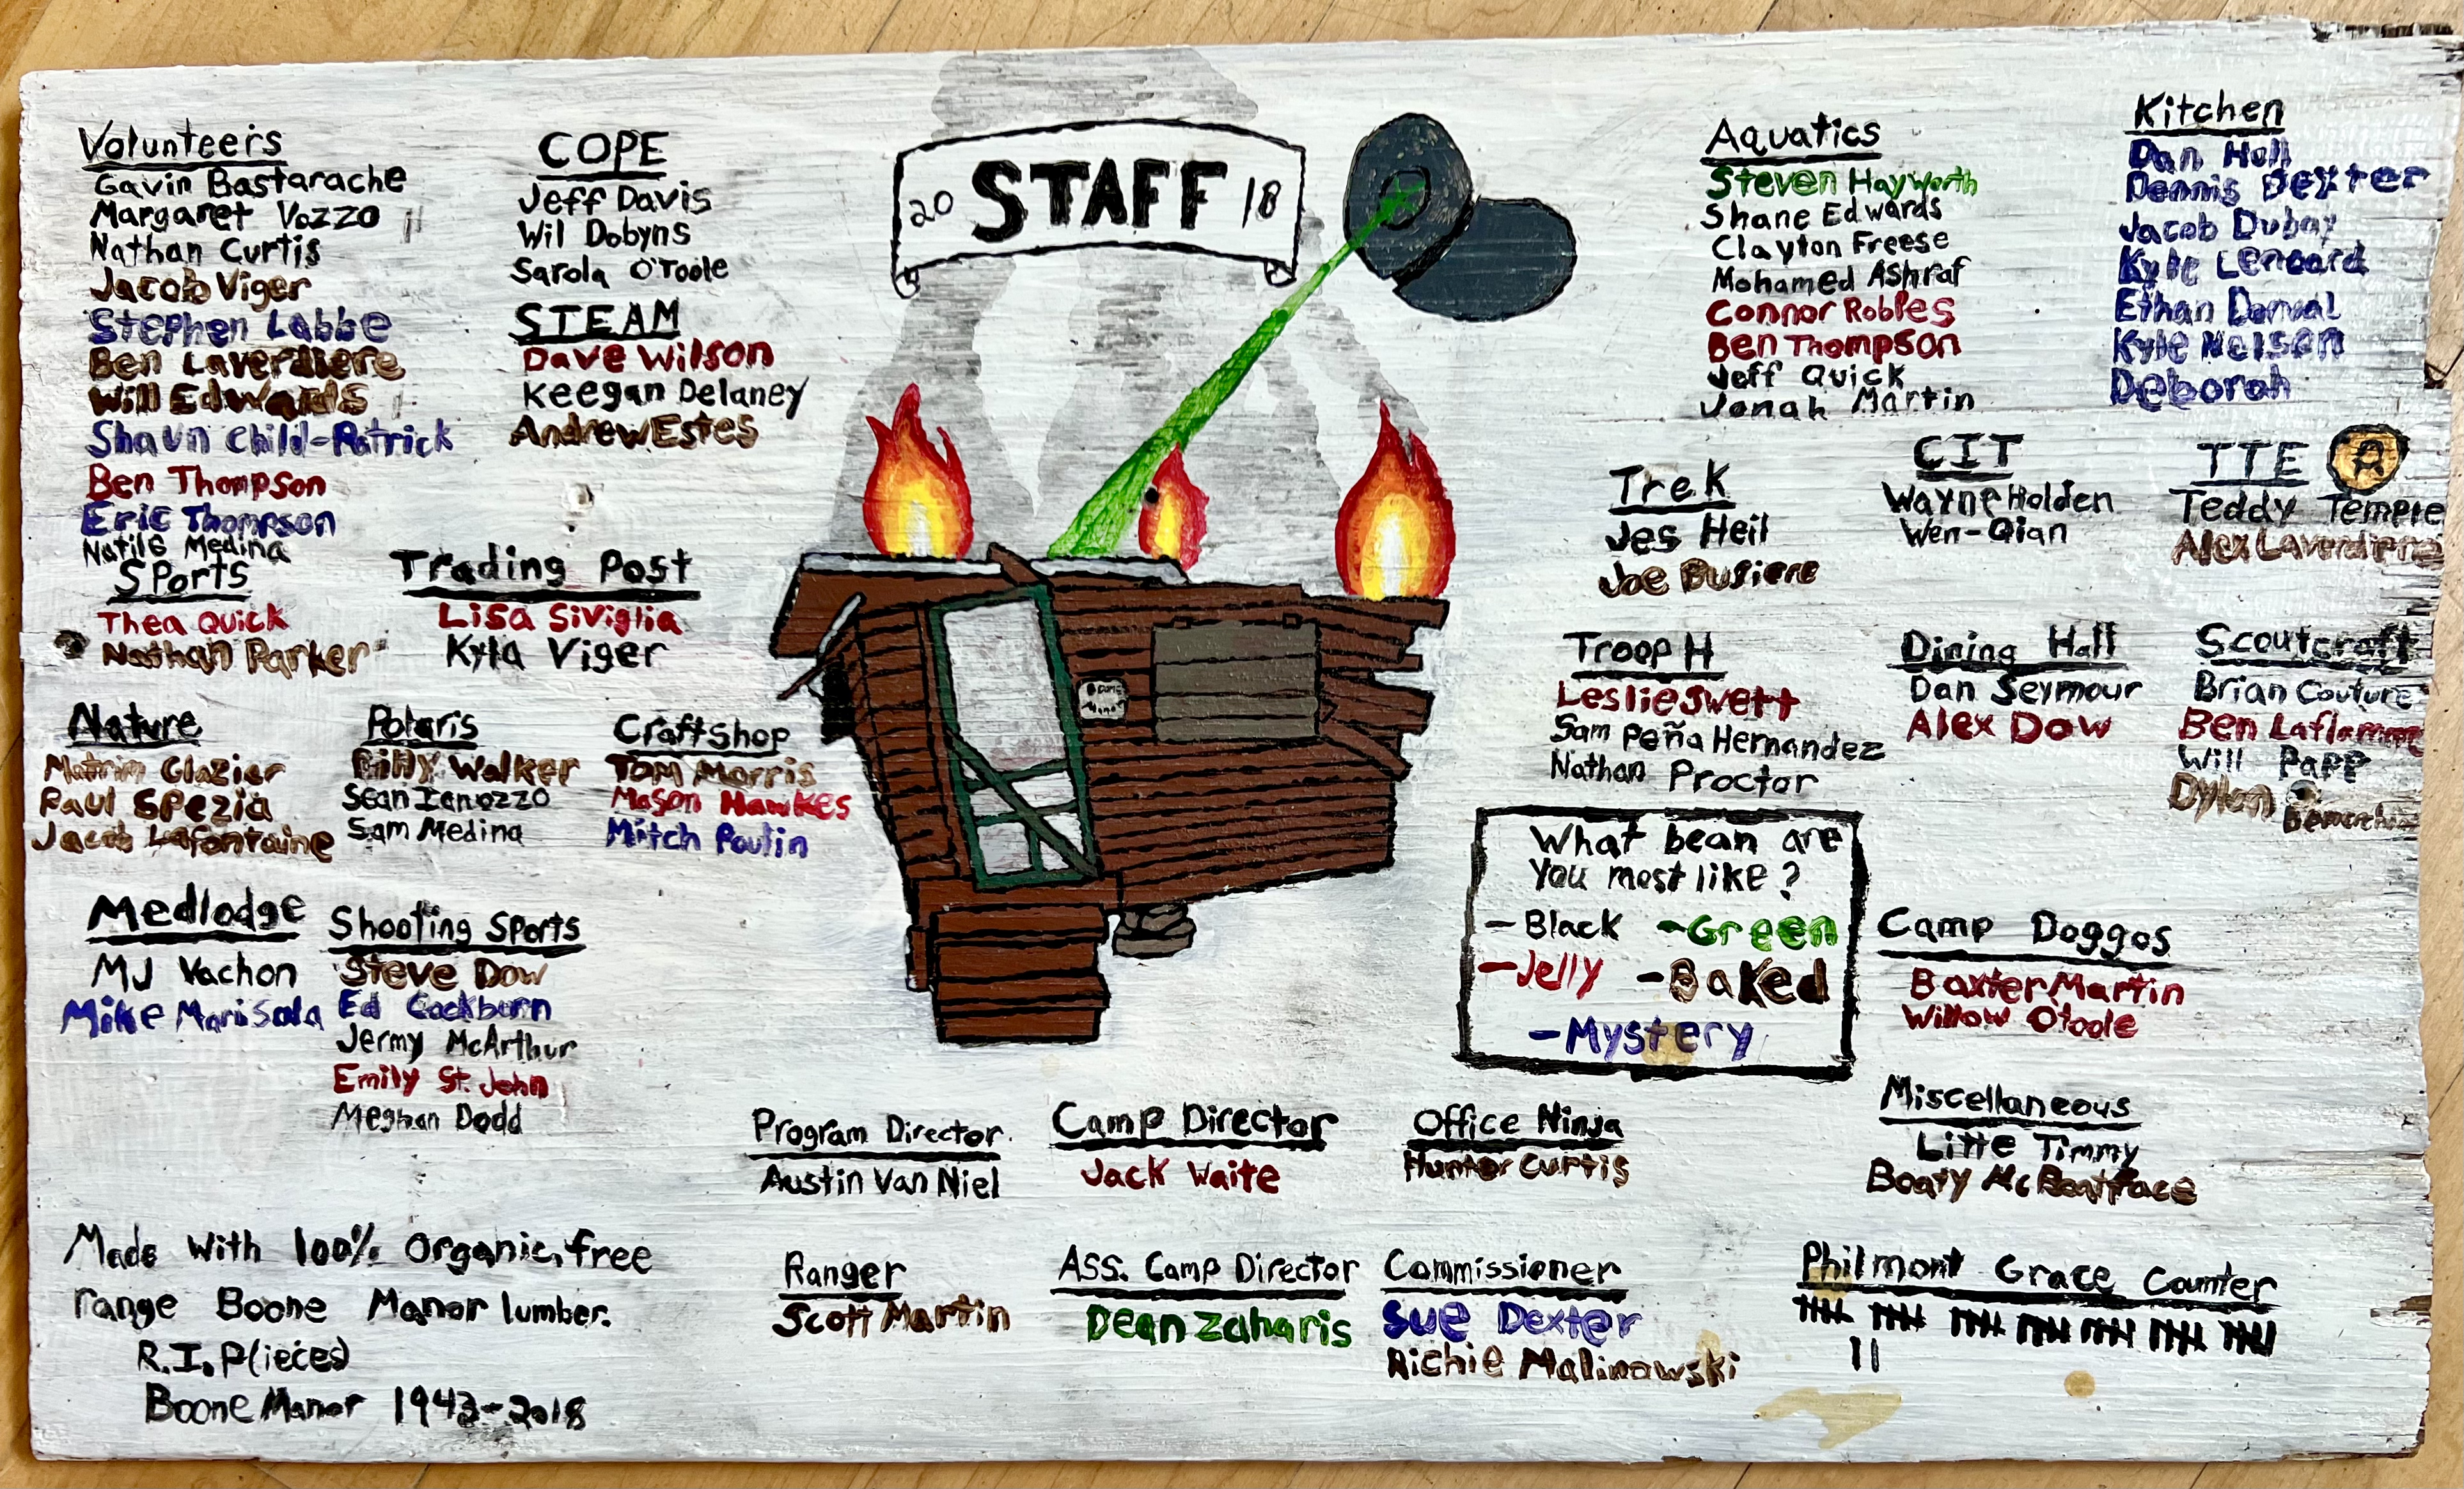 Volunteers
Gavin Bastarache
Margaret Vozzo
Nathan Curtis
Jacob Viger
Stephen Labbe
Ben Laverdiere
Will Edwards
Shaun Child-Patrick
Ben Thompson
Eric Thompson
Medina
Sports
Thea Quick
Nathan Parker
COPE
Jeff Davis
Wil Dobyns
Sarola O'Toole
STEAM
Dave Wilson
Keegan Delaney
Andrew Estes
Trading Post
Lisa Siviglia
Kyla Viger
Nature
Glazier
Paul Spezia
Jacob Lafontaine
Polaris
Billy Walker
Sean
Sam Medina
Craft Shop
Tom Morris
Mason Hawkes
Mitch Poulin
Medlodge
MJ Vachon
Mike Marisola
Shooting Sports
Steve Dow
Ed Cockburn
Jermy McArthur
Emily St. John
Meghan Dodd
20 STAFF 18
Boone
Manor
Aquatics
Steven Hayworth
Shane Edwards
Clayton Freese
Mohamed Ashraf
Connor Robles
Ben Thompson
Jeff Quick
Jonah Martin
Kitchen
Dan Hall
Dennis Dexter
Jacob Dubay
Kyle Leonard
Ethan Dorval
Kyle Nelson
Deborah
Trek
Jes Heil
Joe Busiere
CIT
Wayne Holden
Wen-Qian
TTE
Teddy Temple
Alex Laverdiere
Troop H
Leslie Swett
Sam Peña Hernandez
Nathan Proctor
Dining Hall
Dan Seymour
Alex Dow
Scoutcraft
Brian Couture
Ben Laflamme
Will Papp
Dylan
What bean are
you most like?
-Black -Green
-Jelly -Baked
-Mystery
Camp Doggos
Baxter Martin
Willow Otoole
Miscellaneous
Litte Timmy
Boaty McBoatface
Program Director
Austin Van Niel
Camp Director
Jack Waite
Office Ninja
Hunter Curtis
Ranger
Scott Martin
Ass. Camp Director
Dean Zaharis
Commissioner
Sue Dexter
Richie Malinowski
Philmont Grace Counter
Made with 100% Organic, free
range Boone Manor lumber.
R.I.P(ieces)
Boone Manor 1943-2018